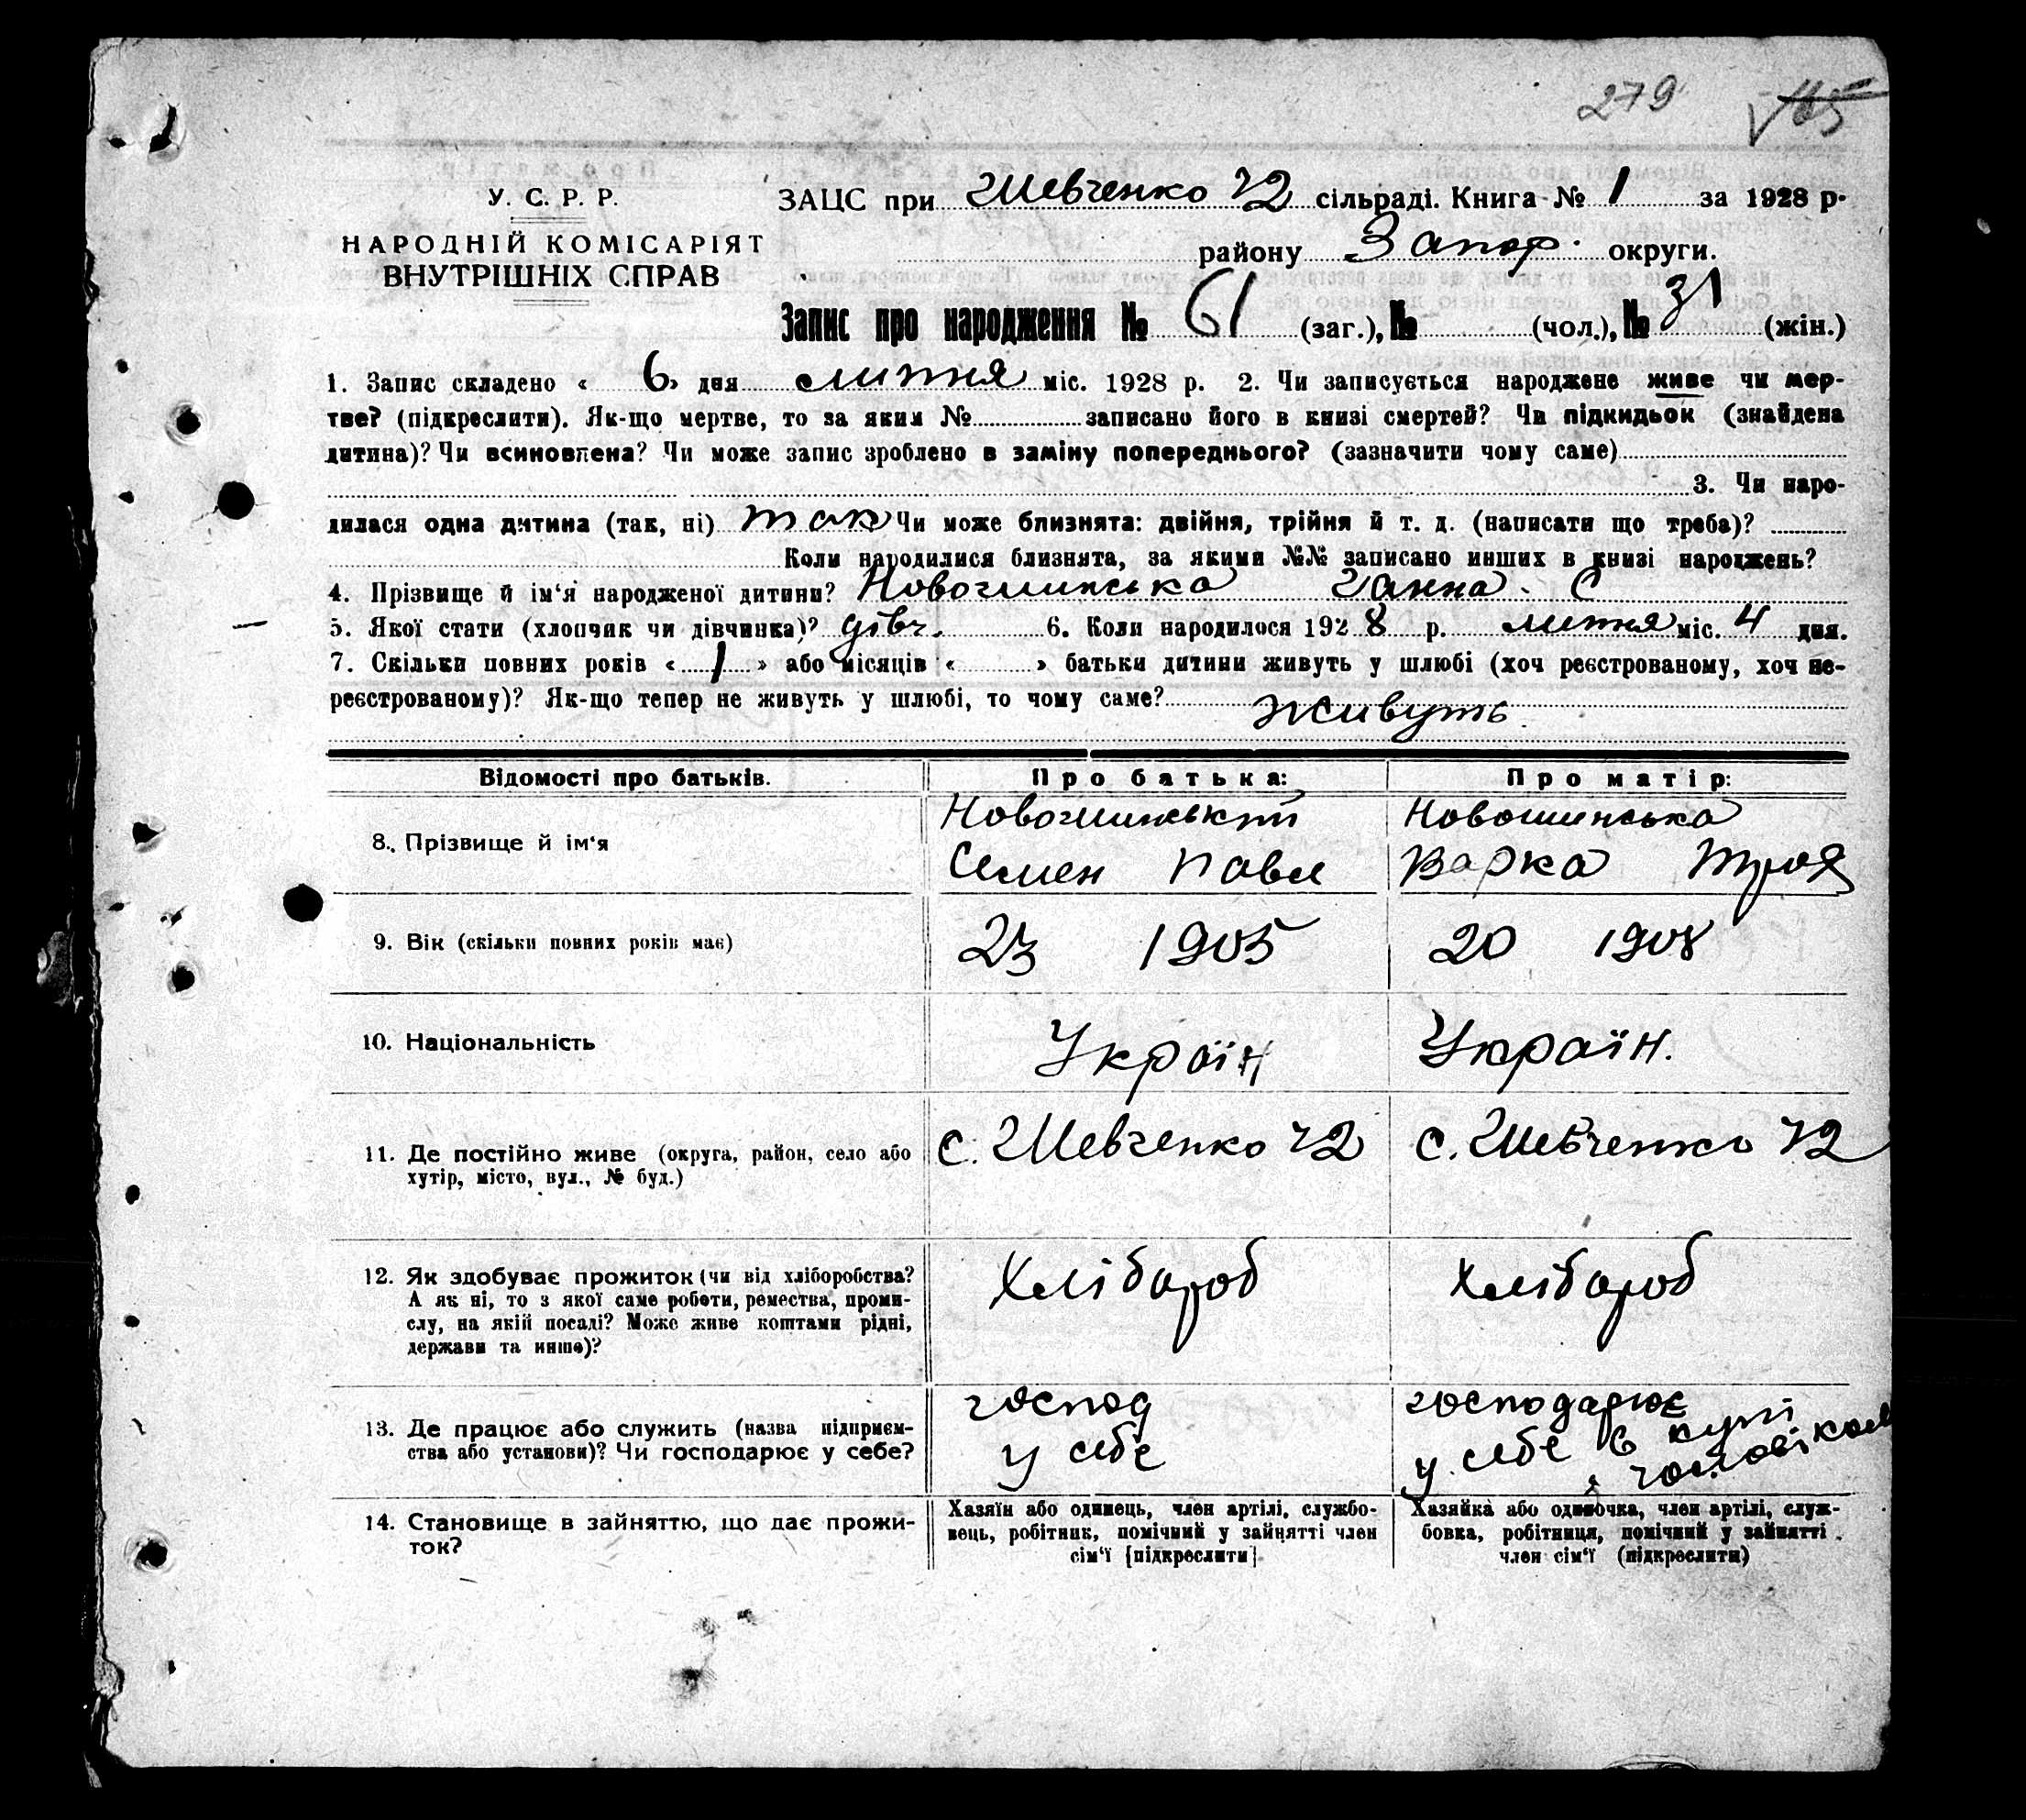 279 165
У. С. Р. Р.
НАРОДНІЙ КОМІСАРІЯТ
ВНУТРІШНІХ СПРАВ
ЗАЦС при Шевченко 72 сільраді. Книга № 1 за 1928 р.
району Запор. округи.
Запис про народження № 61 (заг.), № (чол.), № 31 (жін.)
1. Запис складено « 6 » дня липня міс. 1928 р. 2. Чи записується народжене живе чи мер-
тве? (підкреслити). Як-що мертве, то за яким № записано його в книзі смертей? Чи підкидьок (знайдена
дитина)? Чи всиновлена? Чи може запис зроблено в заміну попереднього? (зазначити чому саме)
3. Чи наро-
дилася одна дитина (так, ні) так Чи може близнята: двійня, трійня й т. д. (написати що треба)?
Коли народилися близнята, за якими №№ записано инших в книзі народжень?
4. Прізвище й ім‘я народженої дитини? Новошинська Ганна. С
5. Якої стати (хлопчик чи дівчинка)? дівч. 6. Коли народилося 1928 р. липня міс. 4 дня.
7. Скільки повних років « 1 » або місяців « » батьки дитини живуть у шлюбі (хоч реєстрованому, хоч не-
реєстрованому)? Як-що тепер не живуть у шлюбі, то чому саме?
живуть
Відомості про батьків. Про батька: Про матір:
8. Прізвище й ім‘я
Новошинський
Семен Павл
Новошинська
Варка
9. Вік (скільки повних років має) 23 1905 20 1908
10. Національність Україн Україн.
11. Де постійно живе (округа, район, село або
хутір, місто, вул., № буд.)
с. Шевченко 72 с. Шевченко 72
12. Як здобуває прожиток (чи від хліборобства?
А як ні, то з якої саме роботи, ремества, проми-
слу, на якій посаді? Може живе коштами рідні,
держави та инше)?
Хлібороб Хлібороб
13. Де працює або служить (назва підприєм-
ства або установи)? Чи господарює у себе?
господ
у себе
господарює
у себе в купі
з чоловіком
14. Становище в зайняттю, що дає прожи-
ток?
Хазяїн або одинець, член артілі, службо-
вець, робітник, помічний у зайнятті член
сім‘ї [підкреслити]
Хазяйка або одиночка, член артілі, служ-
бовка, робітниця, помічний у зайнятті
член сім‘ї (підкреслити)